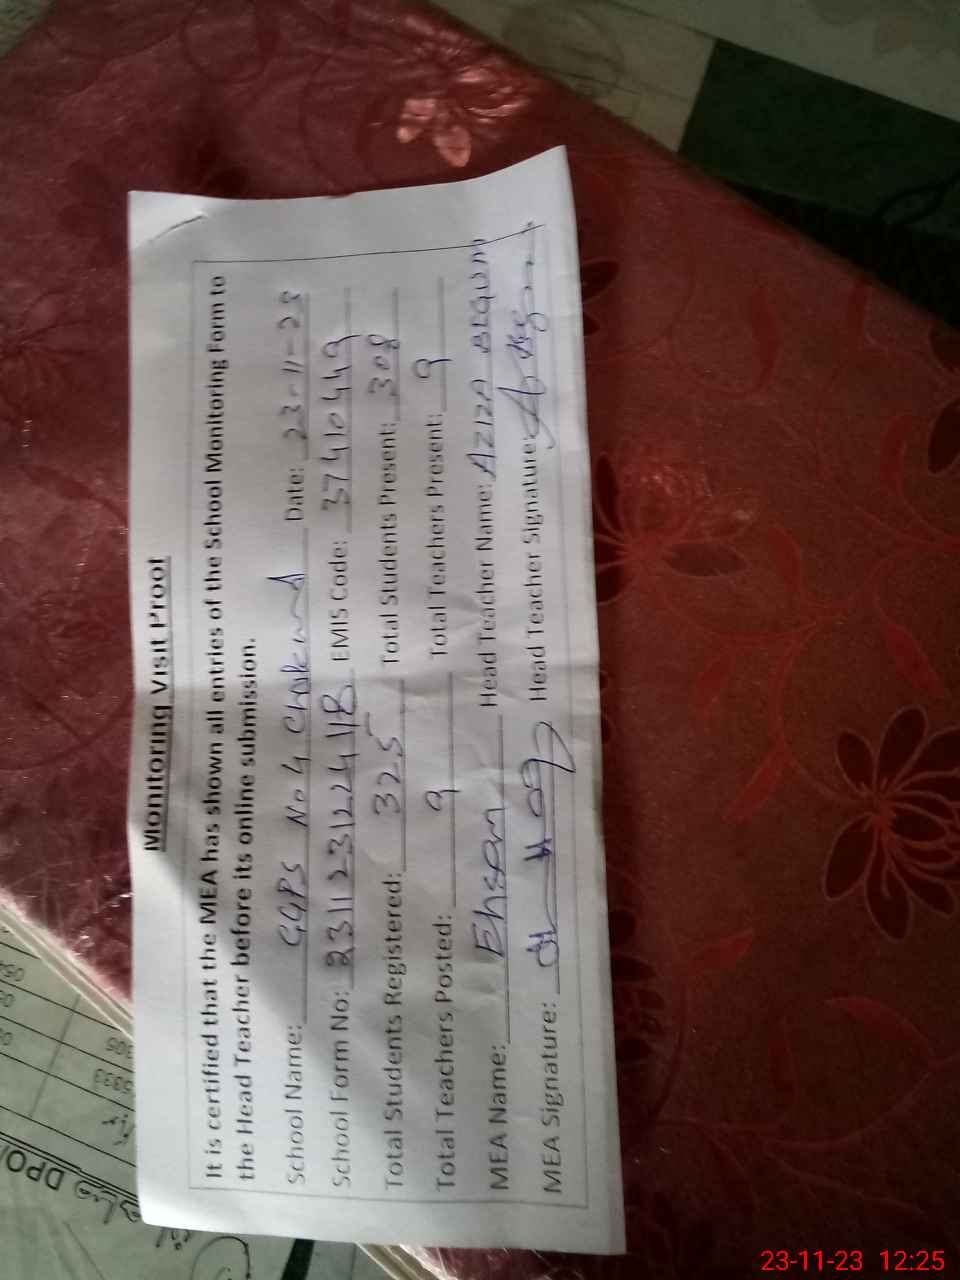 Monitoring Visit Proof
It is certified that the MEA has shown all entries of the School Monitoring Form to
the Head Teacher before its online submission.
School Name: GGPS No 4 Chakwal Date: 23-11-23
School Form No: EMIS Code: 37410449
Total Students Registered: 325 Total Students Present: 308
Total Teachers Posted: 9 Total Teachers Present: 9
MEA Name: Ehsan Head Teacher Name: AZIZA BEGUM
MEA Signature: Head Teacher Signature:
DPO
23-11-23 12:25